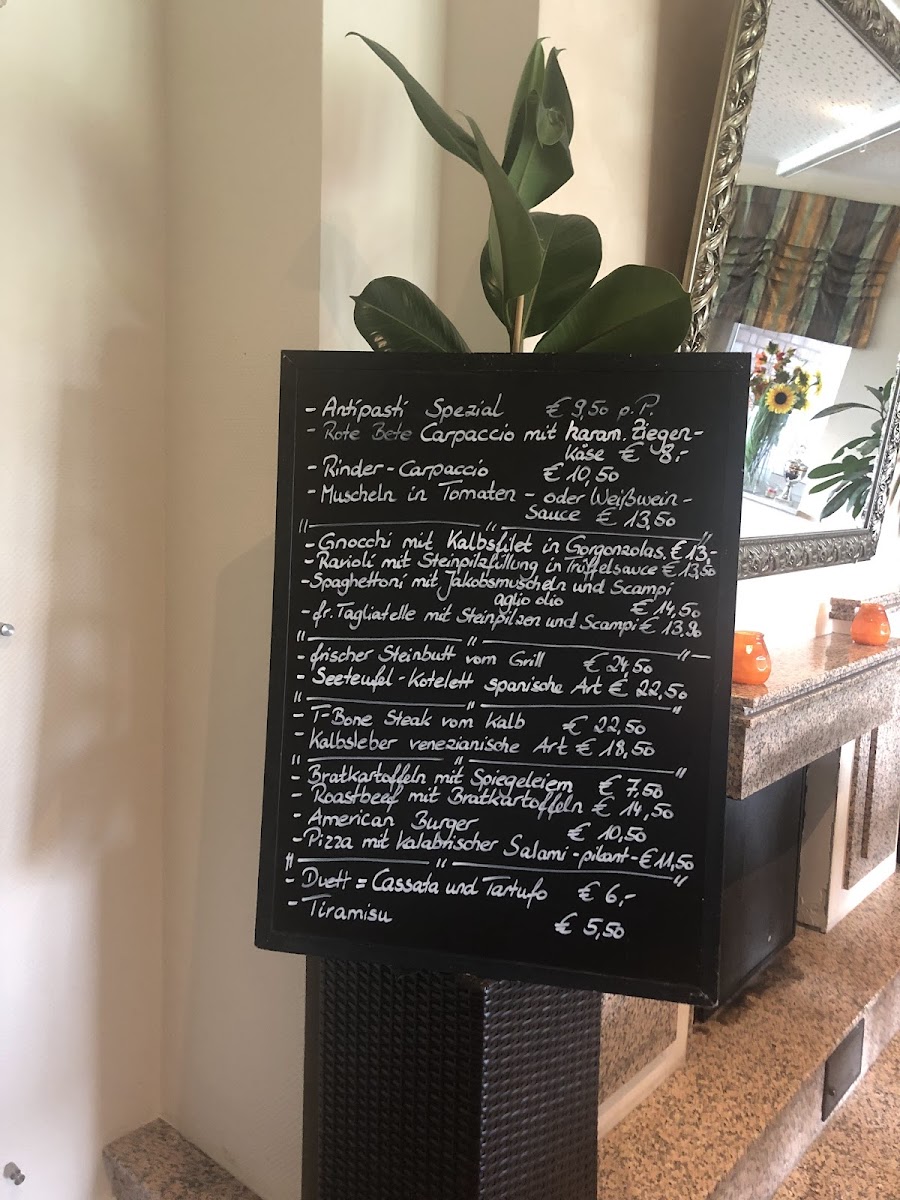 - Antipasti Spezial € 9,50 p.P.
- Rote Bete Carpaccio mit karam. Ziegen-
käse € 8,-
- Rinder-Carpaccio € 10,50
- Muscheln in Tomaten- oder Weißwein-
sauce € 13,50
- Gnocchi mit Kalbsfilet in Gorgonzolas. € 13,-
- Ravioli mit Steinpilzfüllung in Trüffelsauce € 13,50
- Spaghettoni mit Jakobsmuscheln und Scampi
aglio olio € 14,50
- fr. Tagliatelle mit Steinpilzen und Scampi € 13.90
- frischer Steinbutt vom Grill € 24,50
- Seeteufel-Kotelett spanische Art € 22,50
- T-Bone Steak vom Kalb € 22,50
- Kalbsleber venezianische Art € 18,50
- Bratkartoffeln mit Spiegeleiern € 7,50
- Roastbeef mit Bratkartoffeln € 14,50
- American Burger € 10,50
- Pizza mit kalabrischer Salami -pikant- € 11,50
- Duett = Cassata und Tartufo € 6,-
- Tiramisu € 5,50